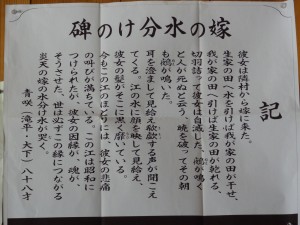 嫁の水分けの碑
記
彼女は隣村から嫁に来た。
生家の田へ水を引けば我が家の田が干せ、
我が家の田へ引けば生家の田が乾れる、
切羽詰って彼女は自滅した。が鳴く
と人が死ぬと云う、暁を破ってその朝
もが鳴いた。
耳を澄まして見給えする声が聞こえ
てくる。江の水に顔を映して見給え
彼女の髪がそこに黒く靡いている。
今もこの江のほとりには、彼女の悲痛
の叫びが満ちている。この江は昭和に
つけられたが、彼女の因縁が、魂が、
そうさせた。世はずこの縁につながる
炎天の嫁の水分けが哭く。
青咲(滝平・大下)八十八才